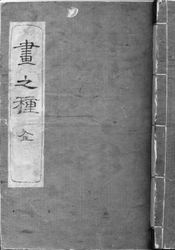 畫之種 全